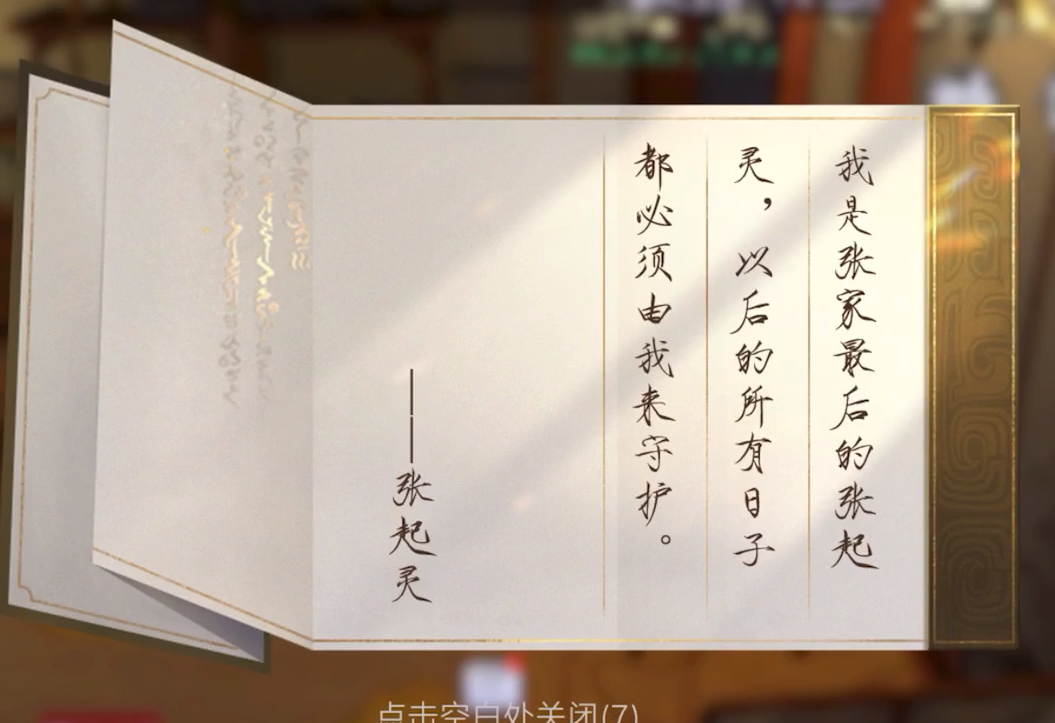 我是张家最后的张起
灵，以后的所有日子
都必须由我来守护。
——张起灵
点击空白处关闭(7)